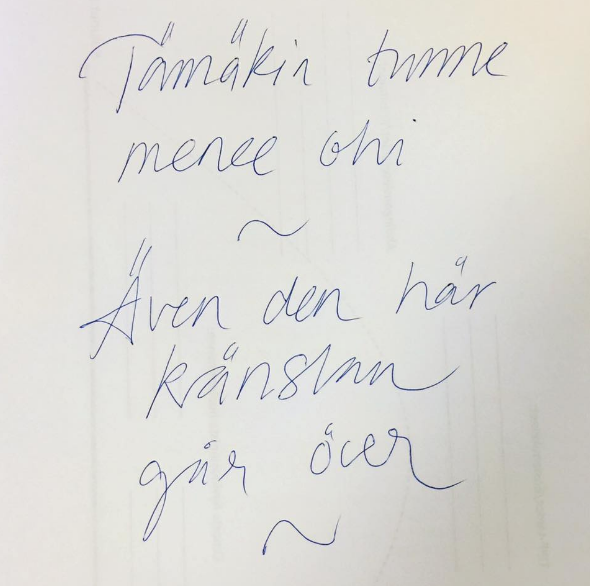 Tämäkin tunne
menee ohi
~
Även den här
känslan
går över
~